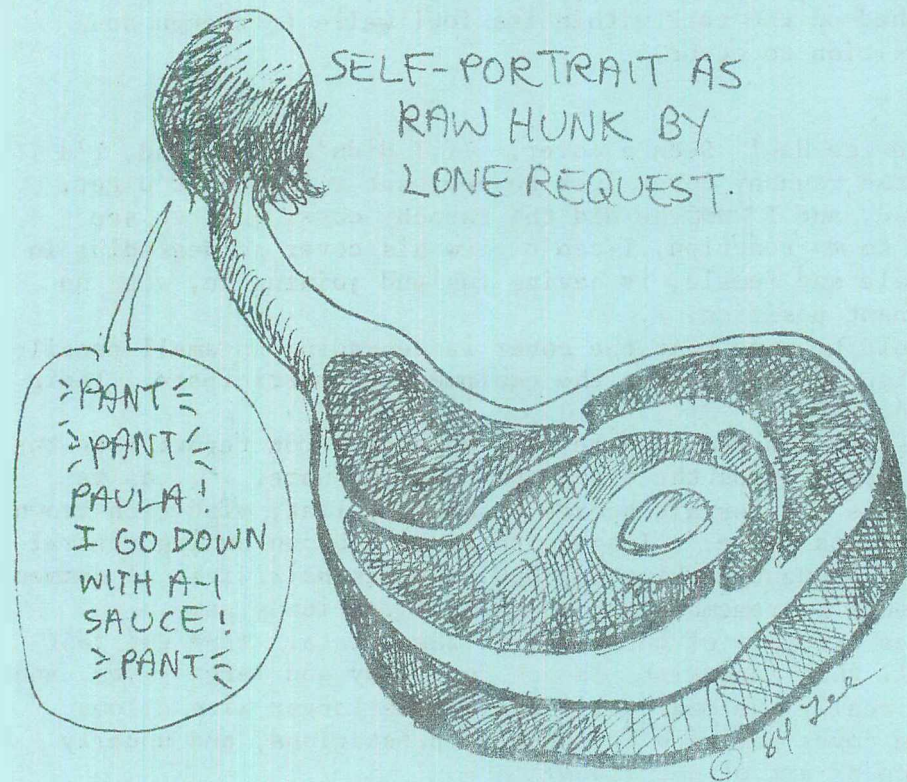 SELF-PORTRAIT AS
RAW HUNK BY
LONE REQUEST.
PANT
PANT
PAULA!
I GO DOWN
WITH A-1
SAUCE!
PANT
© '84 Lee